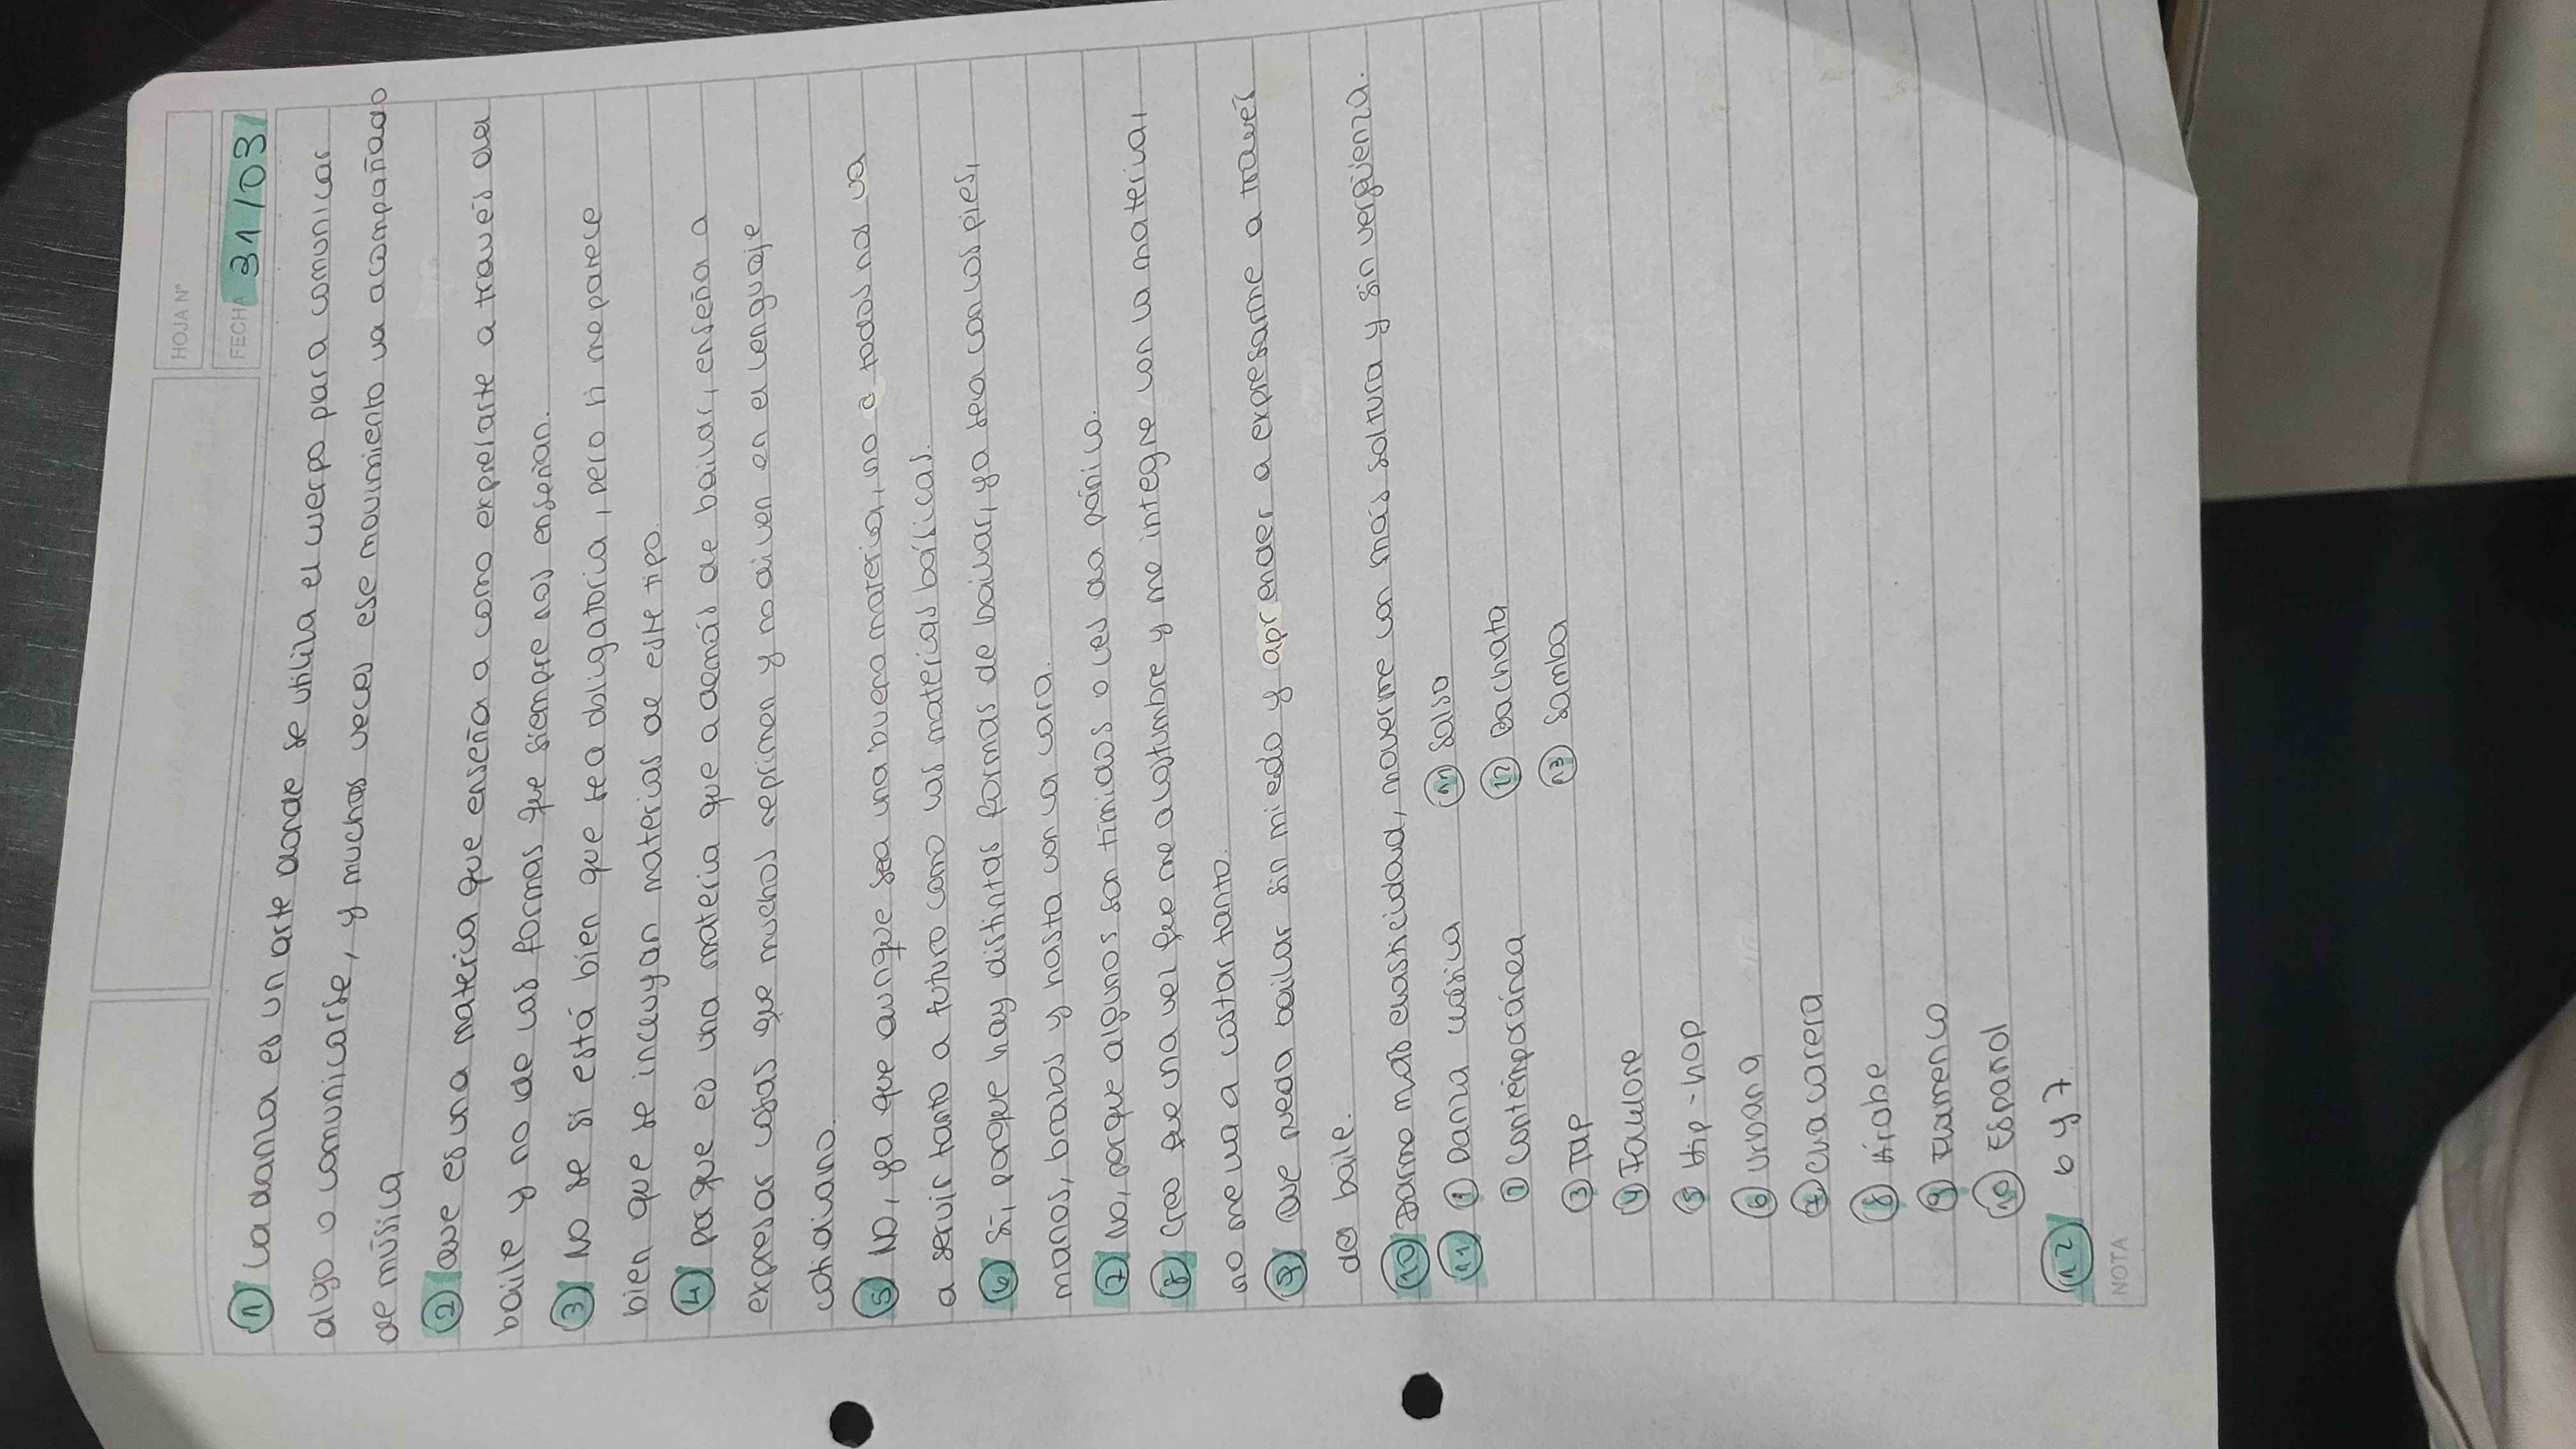 HOJA N°
FECHA 31/03
① La danza es un arte donde se utiliza el cuerpo para comunicar
algo o comunicarse, y muchas veces ese movimiento va acompañado
de música
② Que es una materia que enseña a como expresarte a traves del
baile y no de las formas que siempre nos enseñan.
③ No se si está bien que sea obligatoria, pero si me parece
bien que se incluyan materias de este tipo.
④ porque es una materia que además de bailar, enseña a
expresar cosas que muchos reprimen y no dicen en el lenguaje
cotidiano.
⑤ No, ya que aunque sea una buena materia, no a todos nos va
a servir tanto a futuro como las materias básicas.
⑥ Si, porque hay distintas formas de bailar, ya sea con los pies,
manos, brazos y hasta con la cara.
⑦ No, porque algunos son tímidos o les da pánico.
⑧ Creo que una vez que me acostumbre y me integre con la materia,
no me va a costar tanto.
⑨ Que pueda bailar sin miedo y aprender a expresarme a travéz
del baile.
⑩ Darme más elasticidad, moverme con más soltura y sin vergüenza.
⑪ ① Danza clásica ⑪ Salsa
② Contemporánea ⑫ Bachata
③ Tap ⑬ Samba
④ Folclore
⑤ Hip-hop
⑥ Urbana
⑦ Chacarera
⑧ Árabe
⑨ Flamenco
⑩ Español
⑫ 6 y 7
NOTA